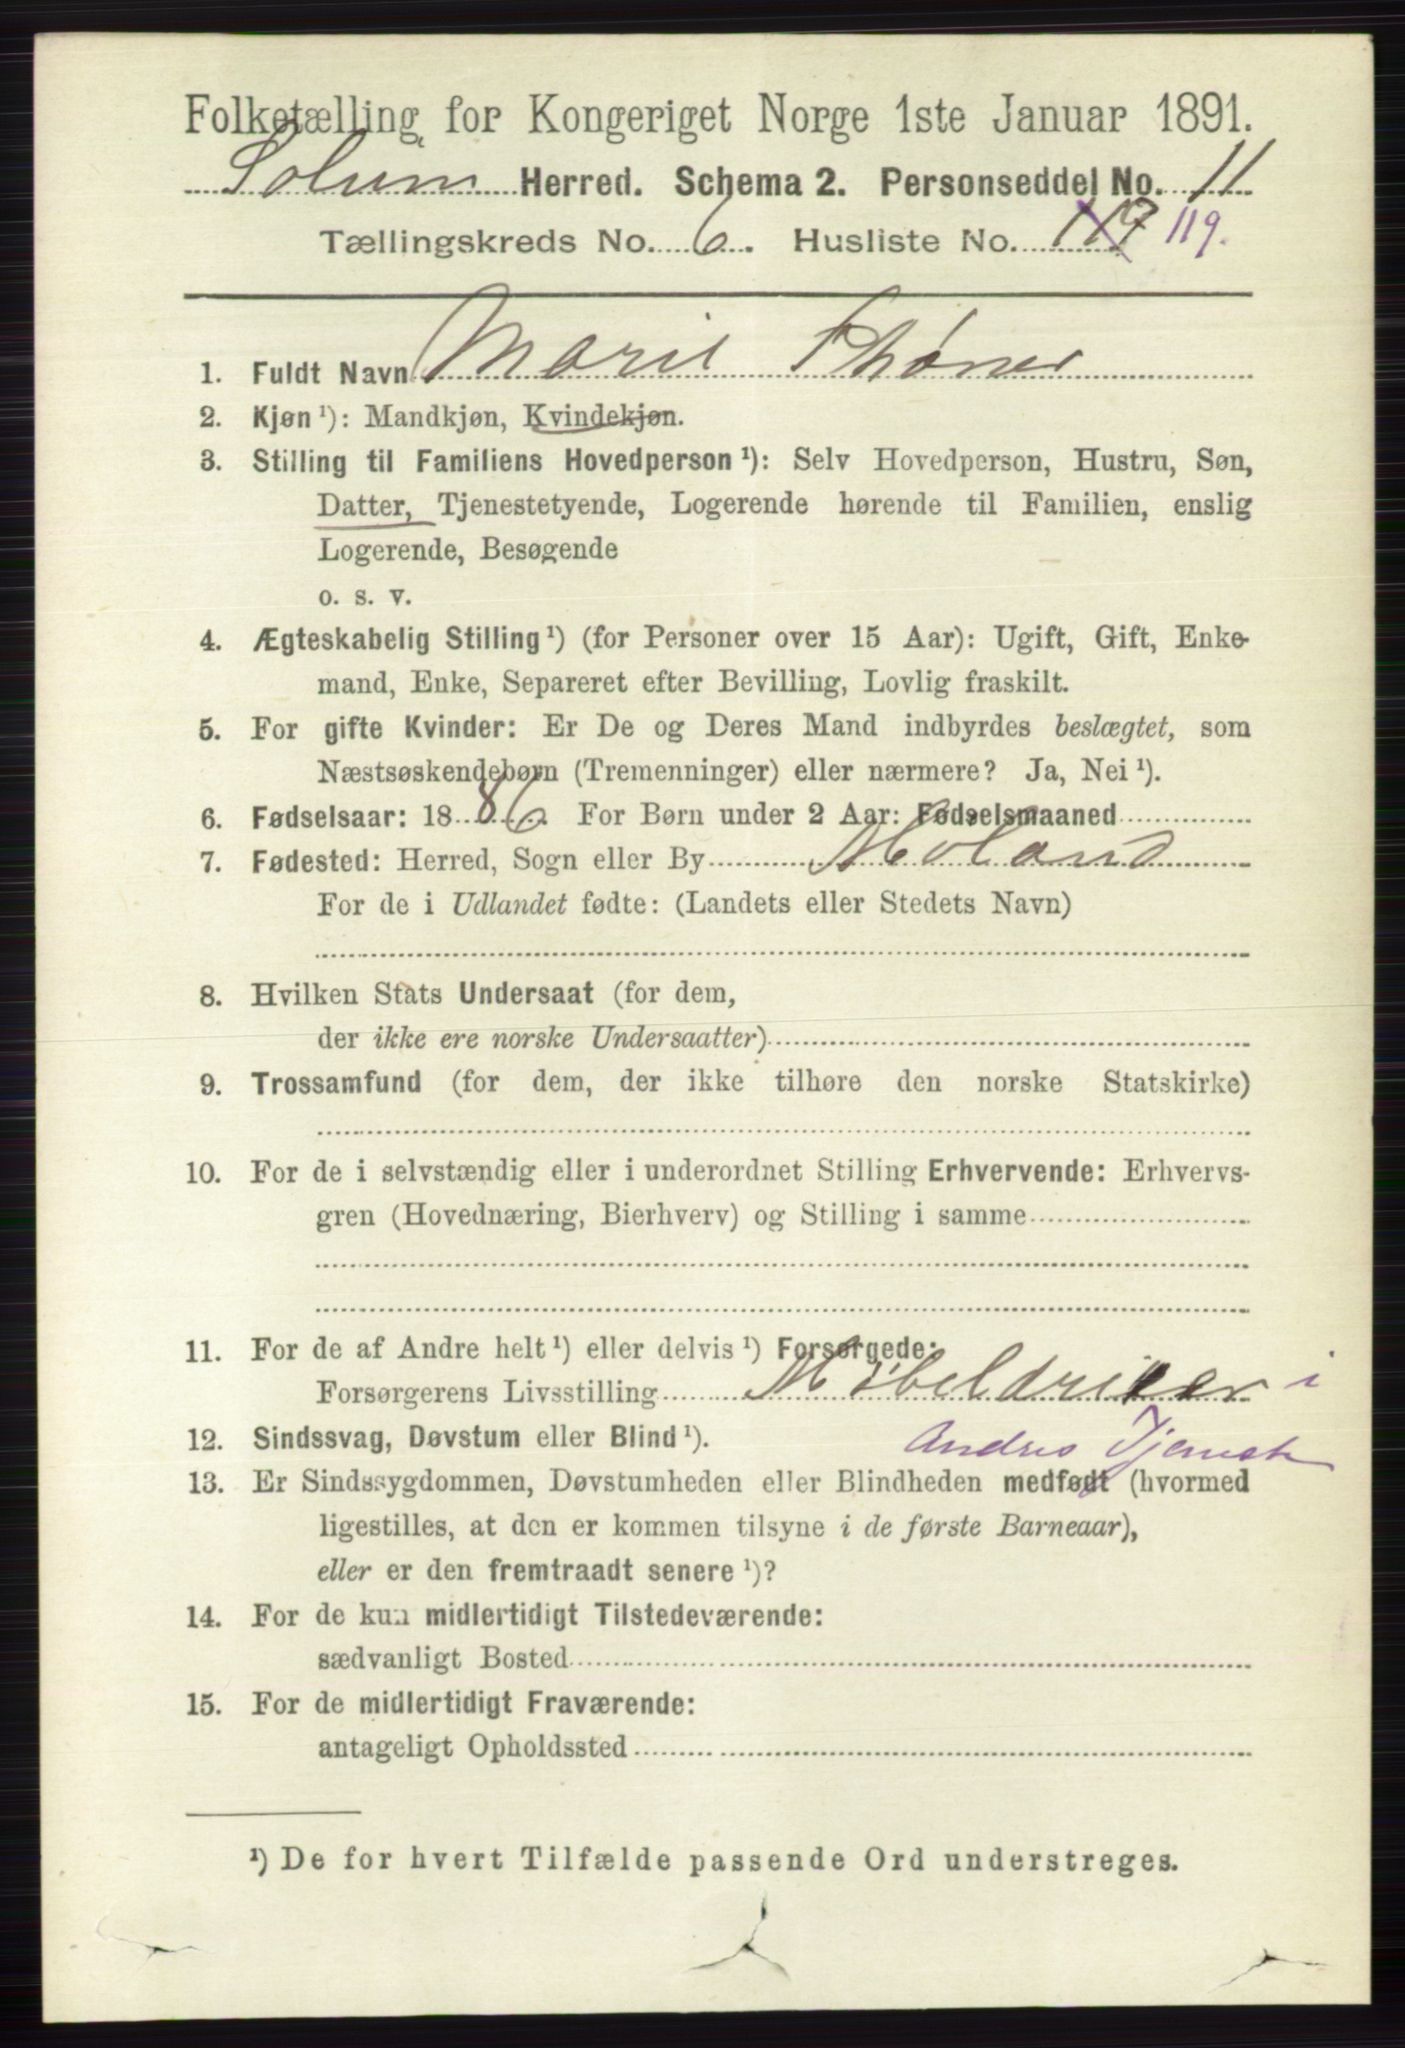 Folketælling for Kongeriget Norge 1ste Januar 1891.
Solum Herred. Schema 2. Personseddel No. 11
Tællingskreds No. 6. Husliste No. 117 119.
1. Fuldt Navn Marie Thónes
2. Kjøn ¹): Mandkjøn, Kvindekjøn.
3. Stilling til Familiens Hovedperson ¹): Selv Hovedperson, Hustru, Søn,
Datter, Tjenestetyende, Logerende hørende til Familien, enslig
Logerende, Besøgende
o. s. v.
4. Ægteskabelig Stilling ¹) (for Personer over 15 Aar): Ugift, Gift, Enke-
mand, Enke, Separeret efter Bevilling, Lovlig fraskilt.
5. For gifte Kvinder: Er De og Deres Mand indbyrdes beslægtet, som
Næstsøskendebørn (Tremenninger) eller nærmere? Ja, Nei ¹).
6. Fødselsaar: 1886. For Børn under 2 Aar: Fødselsmaaned
7. Fødested: Herred, Sogn eller By Moland
For de i Udlandet fødte: (Landets eller Stedets Navn)
8. Hvilken Stats Undersaat (for dem,
der ikke ere norske Undersaatter)
9. Trossamfund (for dem, der ikke tilhøre den norske Statskirke)
10. For de i selvstændig eller i underordnet Stilling Erhvervende: Erhvervs-
gren (Hovednæring, Bierhverv) og Stilling i samme
11. For de af Andre helt ¹) eller delvis ¹) Forsørgede:
Forsørgerens Livsstilling Møbeldriver i
12. Sindssvag, Døvstum eller Blind ¹). Andres Tjenest
13. Er Sindssygdommen, Døvstumheden eller Blindheden medfødt (hvormed
ligestilles, at den er kommen tilsyne i de første Barneaar),
eller er den fremtraadt senere ¹)?
14. For de kun midlertidigt Tilstedeværende:
sædvanligt Bosted
15. For de midlertidigt Fraværende:
antageligt Opholdssted
¹) De for hvert Tilfælde passende Ord understreges.